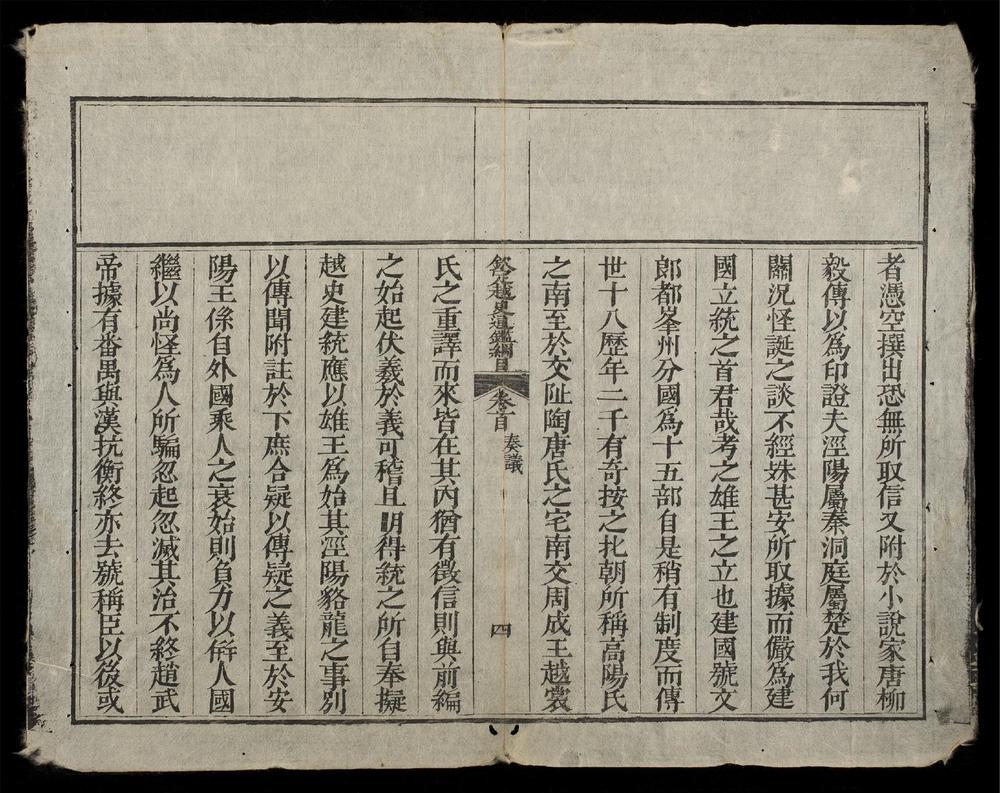 者憑空撰出恐無所取信又附於小說家唐柳
毅傳以為印證夫涇陽屬秦洞庭屬楚於我何
關況怪誕之談不經姝甚安所取據而儼為建
國立統之首君哉考之雄王之立也建國號文
郎都峯州分國為十五部自是稍有制度而傳
世十八歷年二千有奇按之北朝所稱高陽氏
之南至於交阯陶唐氏之宅南交周成王越裳
欽定越史通鑑綱目 卷首 奏議 四
氏之重譯而來皆在其內猶有徵信則與前編
之始起伏羲於義可稽且明得統之所自奉擬
越史建統應以雄王為始其涇陽貉龍之事別
以傳聞附註於下庶合疑以傳疑之義至於安
陽王係自外國乘人之衰始則負力以併人國
繼以尚怪為人所騙忽起忽滅其治不終趙武
帝據有番禺與漢抗衡終亦去號稱臣以後或